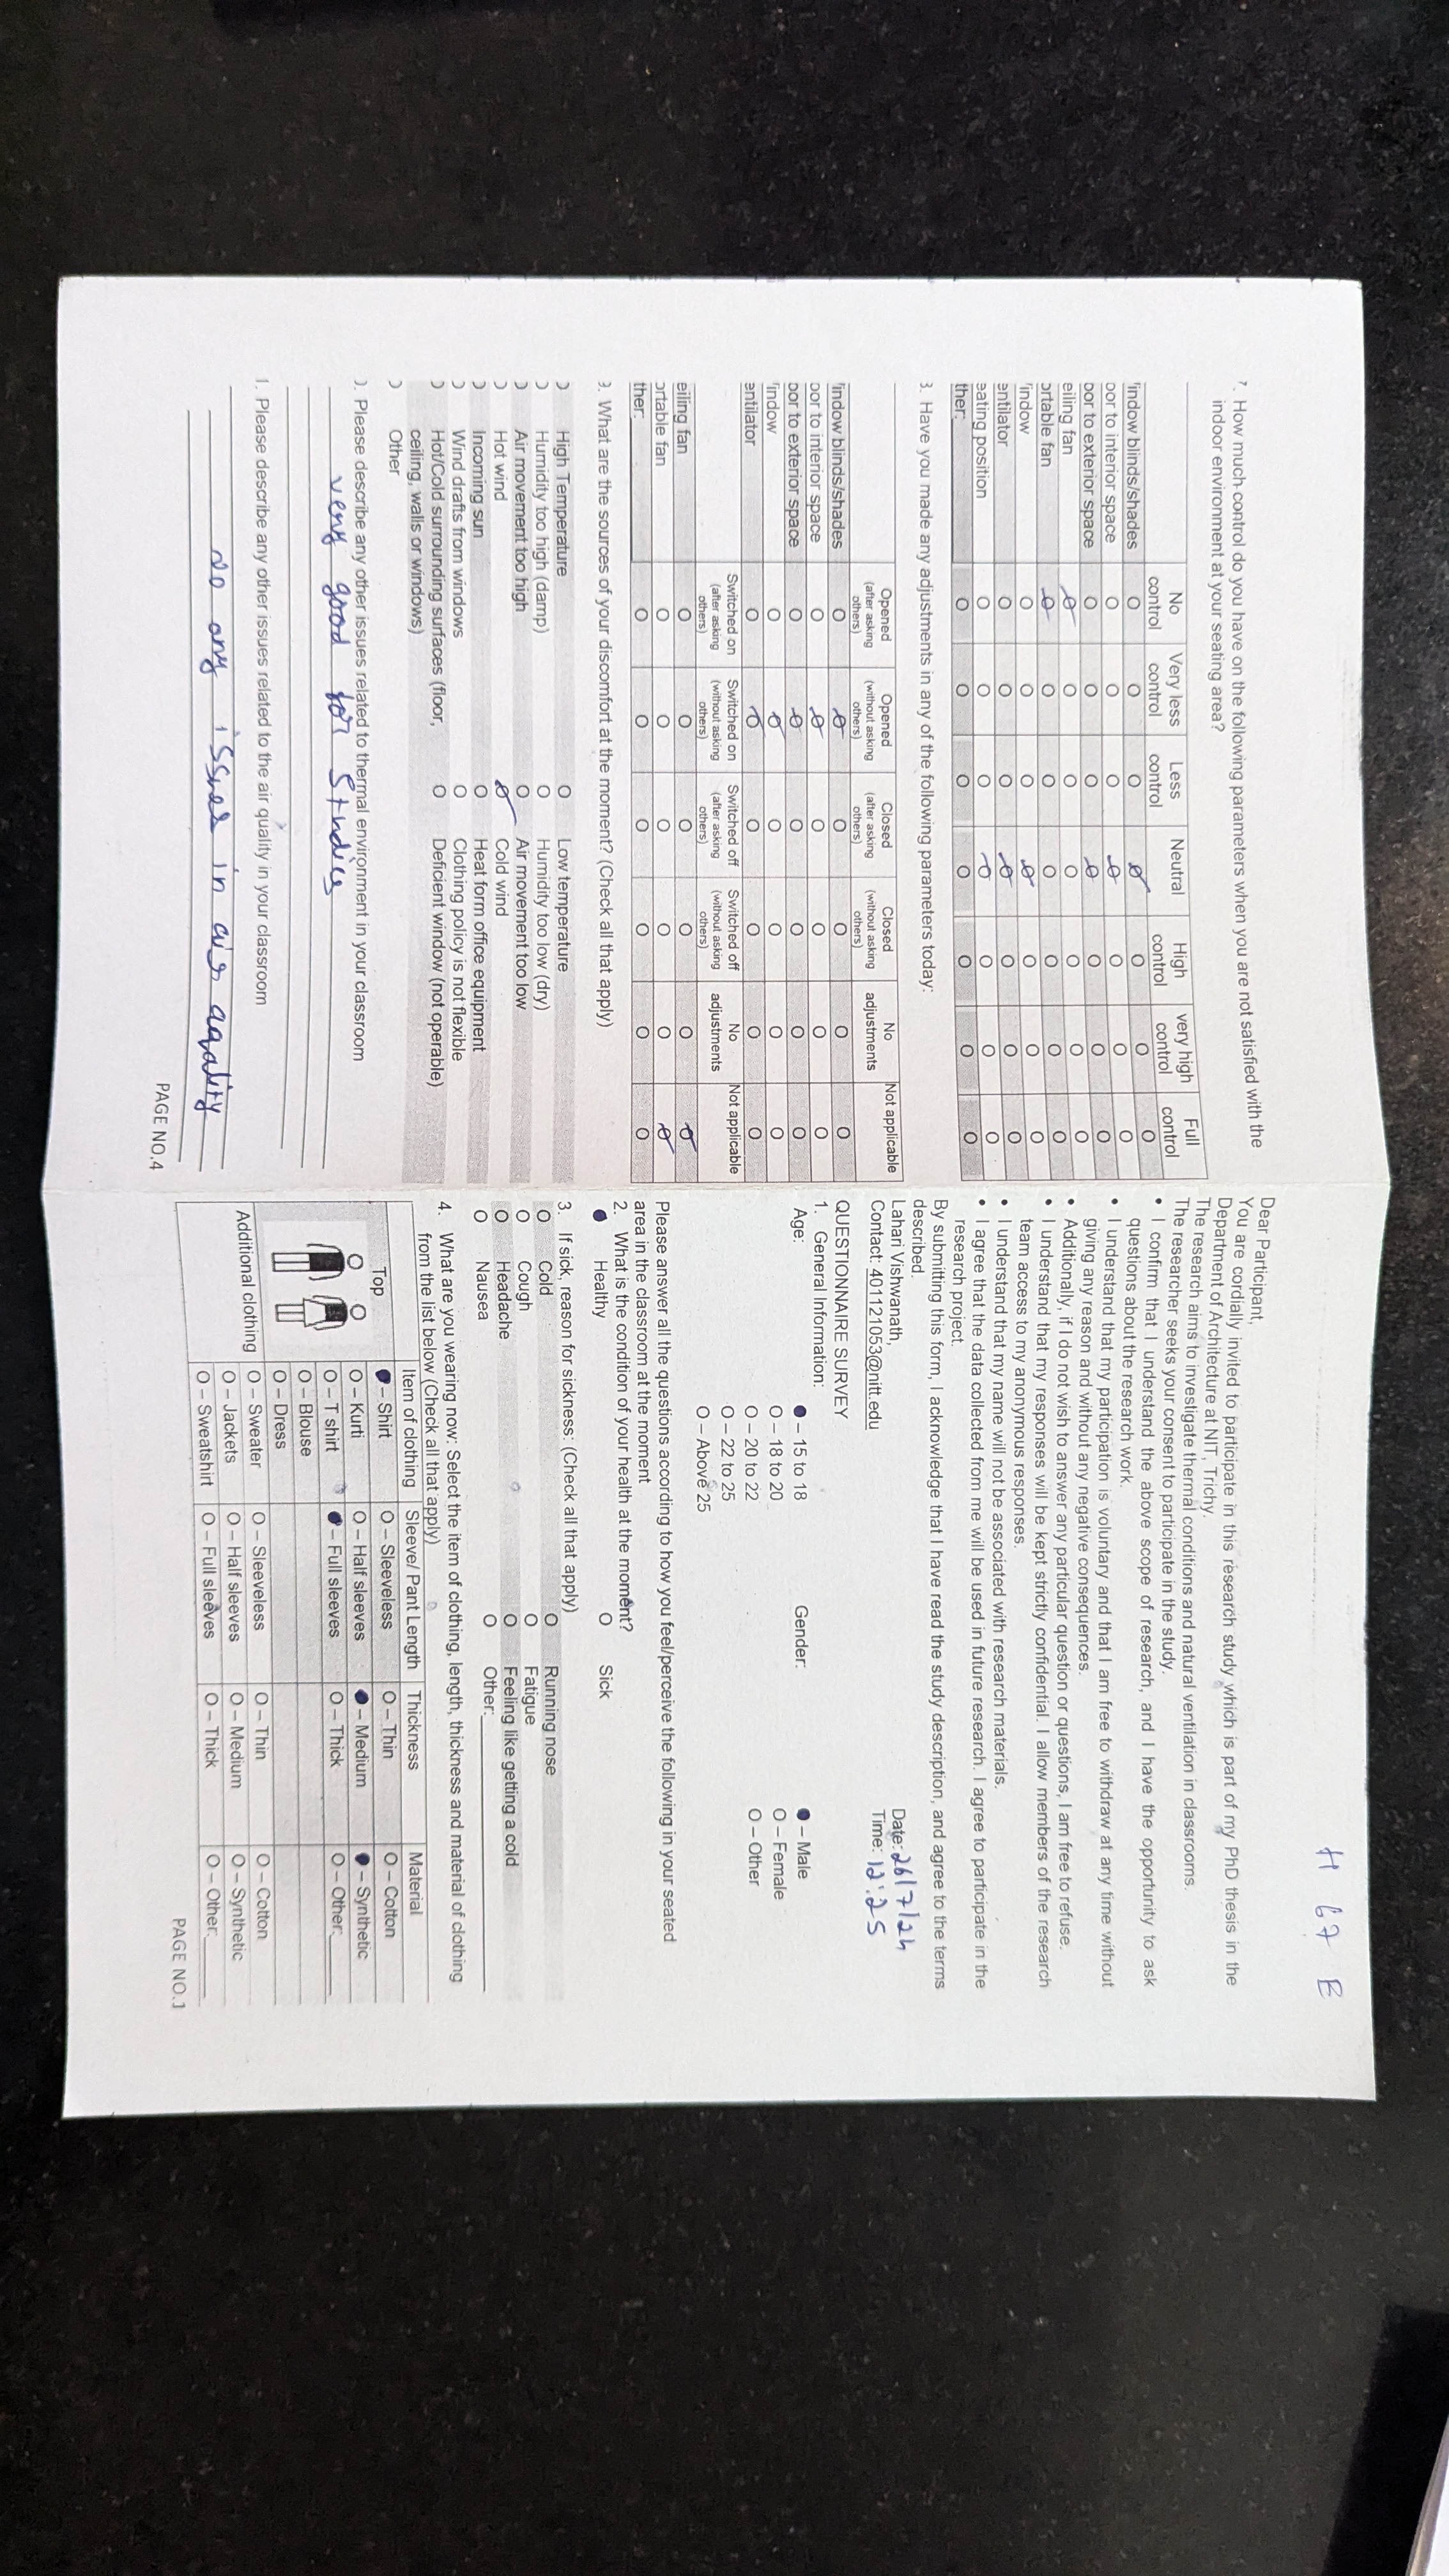 7. How much control do you have on the following parameters when you are not satisfied with the
indoor environment at your seating area?
No control Very less control Less control Neutral High control very high control Full control
indow blinds/shades O O O O O O O
oor to interior space O O O O O O O
oor to exterior space O O O O O O O
eiling fan O O O O O O O
ortable fan O O O O O O O
indow O O O O O O O
entilator O O O O O O O
eating position O O O O O O O
ther: O O O O O O O
3. Have you made any adjustments in any of the following parameters today:
Opened (after asking others) Opened (without asking others) Closed (after asking others) Closed (without asking others) No adjustments Not applicable
indow blinds/shades O O O O O O
oor to interior space O O O O O O
oor to exterior space O O O O O O
indow O O O O O O
entilator O O O O O O
Switched on (after asking others) Switched on (without asking others) Switched off (after asking others) Switched off (without asking others) No adjustments Not applicable
eiling fan O O O O O O
ortable fan O O O O O O
ther: O O O O O O
9. What are the sources of your discomfort at the moment? (Check all that apply)
High Temperature O Low temperature
Humidity too high (damp) O Humidity too low (dry)
Air movement too high O Air movement too low
Hot wind O Cold wind
Incoming sun O Heat form office equipment
Wind drafts from windows O Clothing policy is not flexible
Hot/Cold surrounding surfaces (floor, O Deficient window (not operable)
ceiling, walls or windows)
Other
). Please describe any other issues related to thermal environment in your classroom
very good for Studies
. Please describe any other issues related to the air quality in your classroom
no any issues in air aqality
PAGE NO.4
H 67 E
Dear Participant,
You are cordially invited to participate in this research study which is part of my PhD thesis in the
Department of Architecture at NIT, Trichy.
The research aims to investigate thermal conditions and natural ventilation in classrooms.
The researcher seeks your consent to participate in the study.
• I confirm that I understand the above scope of research, and I have the opportunity to ask
questions about the research work.
• I understand that my participation is voluntary and that I am free to withdraw at any time without
giving any reason and without any negative consequences.
• Additionally, if I do not wish to answer any particular question or questions, I am free to refuse.
• I understand that my responses will be kept strictly confidential. I allow members of the research
team access to my anonymous responses.
• I understand that my name will not be associated with research materials.
• I agree that the data collected from me will be used in future research. I agree to participate in the
research project.
By submitting this form, I acknowledge that I have read the study description, and agree to the terms
described.
Lahari Vishwanath, Date: 26/7/24
Contact: 401121053@nitt.edu Time: 12:25
QUESTIONNAIRE SURVEY
1. General Information:
Age: – 15 to 18 Gender: – Male
O – 18 to 20 O – Female
O – 20 to 22 O – Other
O – 22 to 25
O – Above 25
Please answer all the questions according to how you feel/perceive the following in your seated
area in the classroom at the moment
2. What is the condition of your health at the moment?
Healthy O Sick
3. If sick, reason for sickness: (Check all that apply)
O Cold O Running nose
O Cough O Fatigue
O Headache O Feeling like getting a cold
O Nausea O Other:
4. What are you wearing now: Select the item of clothing, length, thickness and material of clothing
from the list below (Check all that apply)
Item of clothing Sleeve/ Pant Length Thickness Material
Top – Shirt O – Sleeveless O – Thin O – Cotton
O – Kurti O – Half sleeves – Medium – Synthetic
O – T shirt – Full sleeves O – Thick O – Other:
O – Blouse
O – Dress
Additional clothing O – Sweater O – Sleeveless O – Thin O – Cotton
O – Jackets O – Half sleeves O – Medium O – Synthetic
O – Sweatshirt O – Full sleeves O – Thick O – Other:
PAGE NO.1